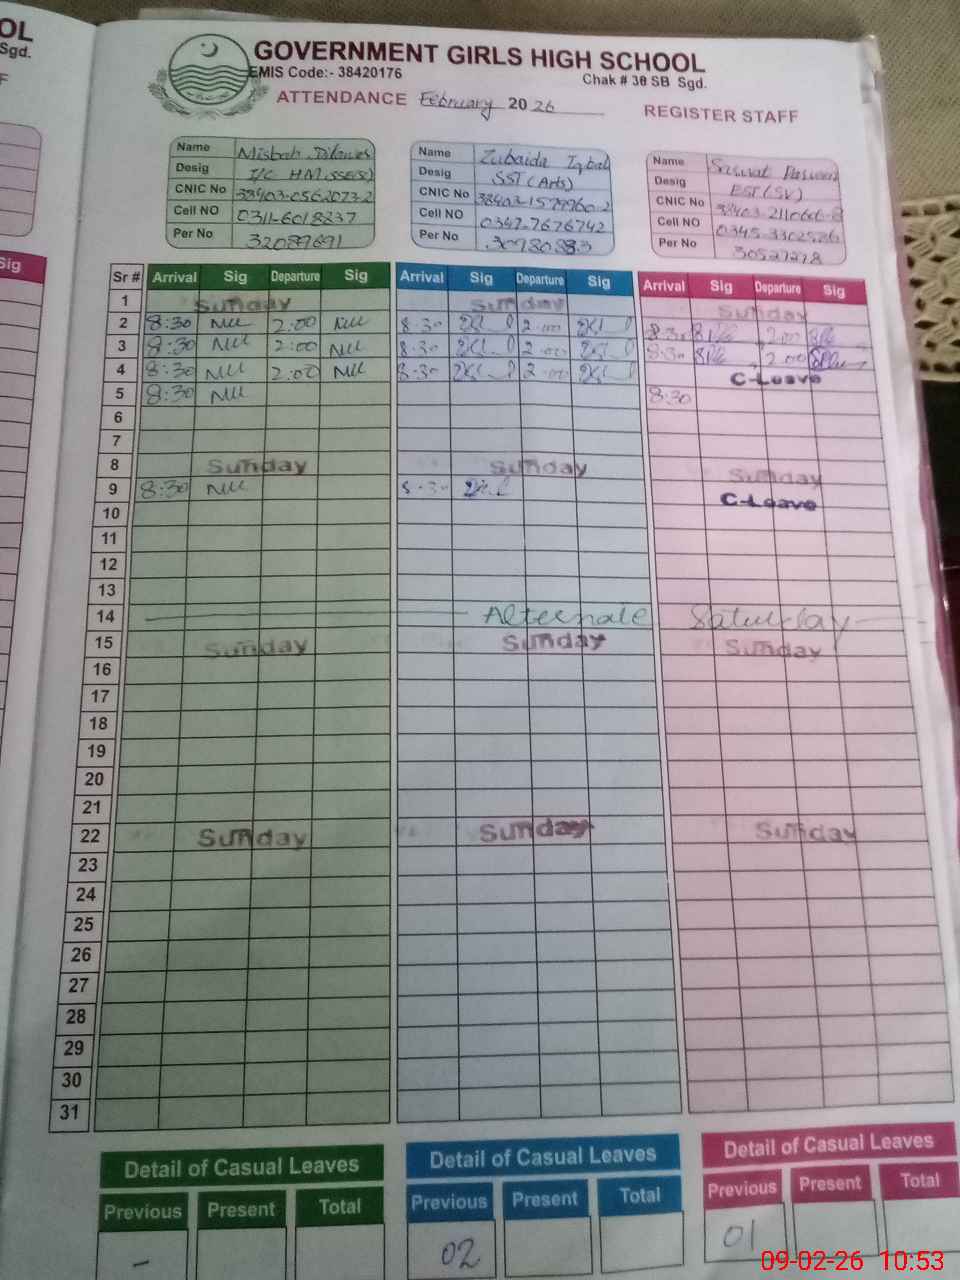 OL
Sgd.
F
Sig
GOVERNMENT GIRLS HIGH SCHOOL
EMIS Code:- 38420176 Chak # 30 SB Sgd.
ATTENDANCE February 2026 REGISTER STAFF
Name Misbah Dilawes
Desig I/C HM (SSE(S))
CNIC No 38403-0562073-2
Cell NO 0311-6018837
Per No 32089691
Name Zubaida Iqbal
Desig SST (Arts)
CNIC No 38403-1579960-2
Cell NO 0347-7676742
Per No 30980883
Name Parveen
Desig EST (SV)
CNIC No
Cell NO
Per No 30527278
Sr # Arrival Sig Departure Sig Arrival Sig Departure Sig Arrival Sig Departure Sig
1 Sunday Sunday Sunday
2 8:30 2:00 8:30 2:00 8:30 2:00
3 8:30 2:00 8:30 2:00 8:30 2:00
4 8:30 2:00 8:30 2:00 C-Leave
5 8:30 8:30
6
7
8 Sunday Sunday Sunday
9 8:30 8:30 C-Leave
10
11
12
13
14 Alternate Saturday
15 Sunday Sunday Sunday
16
17
18
19
20
21
22 Sunday Sunday Sunday
23
24
25
26
27
28
29
30
31
Detail of Casual Leaves Detail of Casual Leaves Detail of Casual Leaves
Previous Present Total Previous Present Total Previous Present Total
- 02 01
09-02-26 10:53